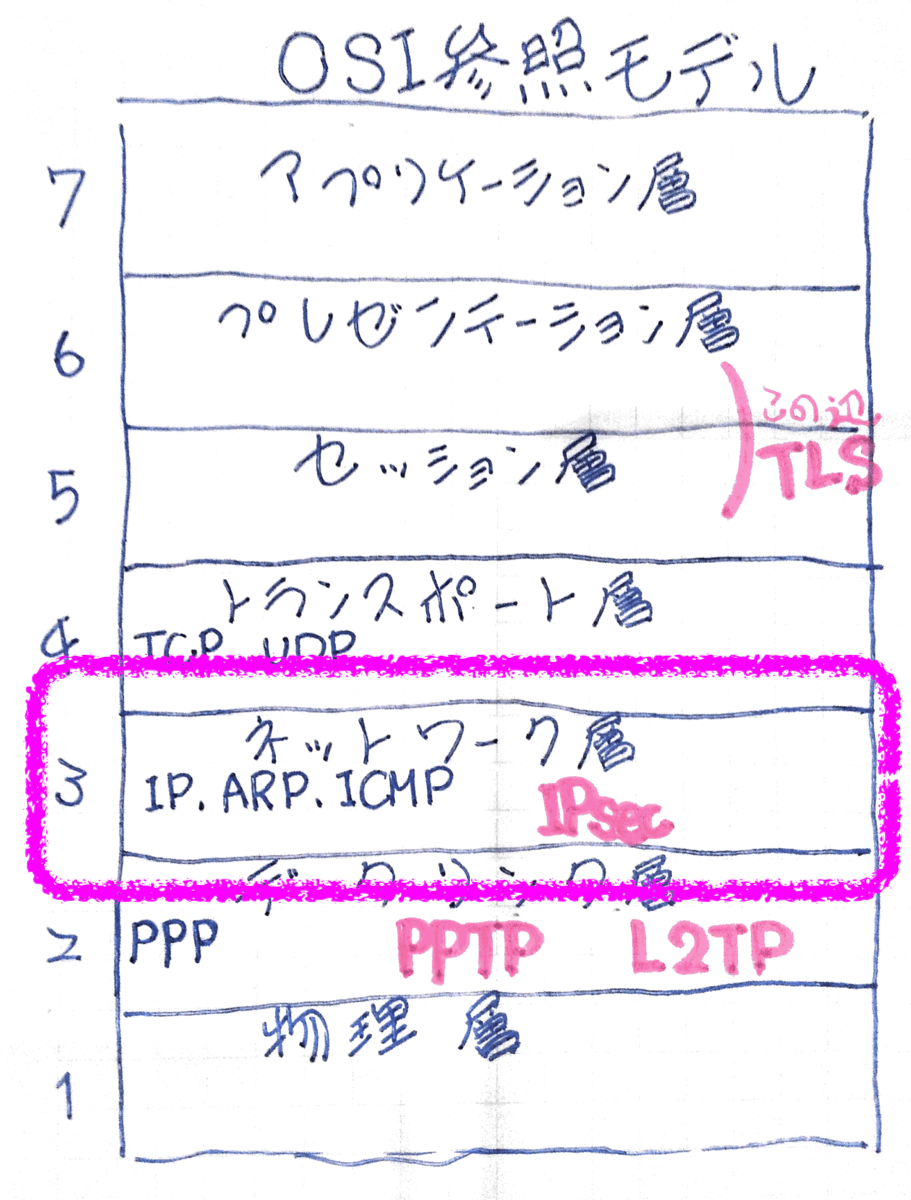 OSI参照モデル
7 アプリケーション層
6 プレゼンテーション層
この辺
TLS
5 セッション層
4 トランスポート層
TCP UDP
3 ネットワーク層
IP. ARP. ICMP IPsec
データリンク層
2 PPP PPTP L2TP
物理層
1